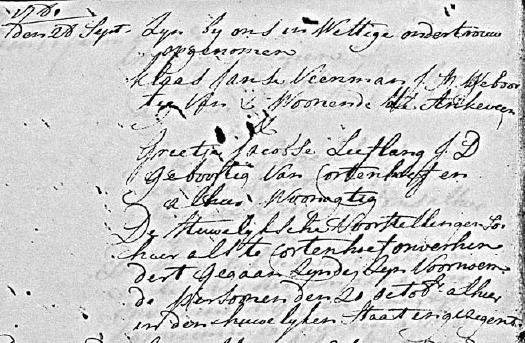 178.
den 28 Sept. Zyn by ons in Wettige ondertrouw
opgenomen
Klaas Janse Veenman J M Geboor
tig Van & Woonende te Ankeveen
&
Grietje Jacobse Leeflang J D
Geboortig Van Cortenhoef en
alhier Woonagtig
De Huwelyksche Voorstellingen so
hier als te Cortenhoef onverhin
dert gegaan Zynde, Zyn Voornoem
de Personen den 20 octobr alhier
in den huwelyken Staat ingezegent.